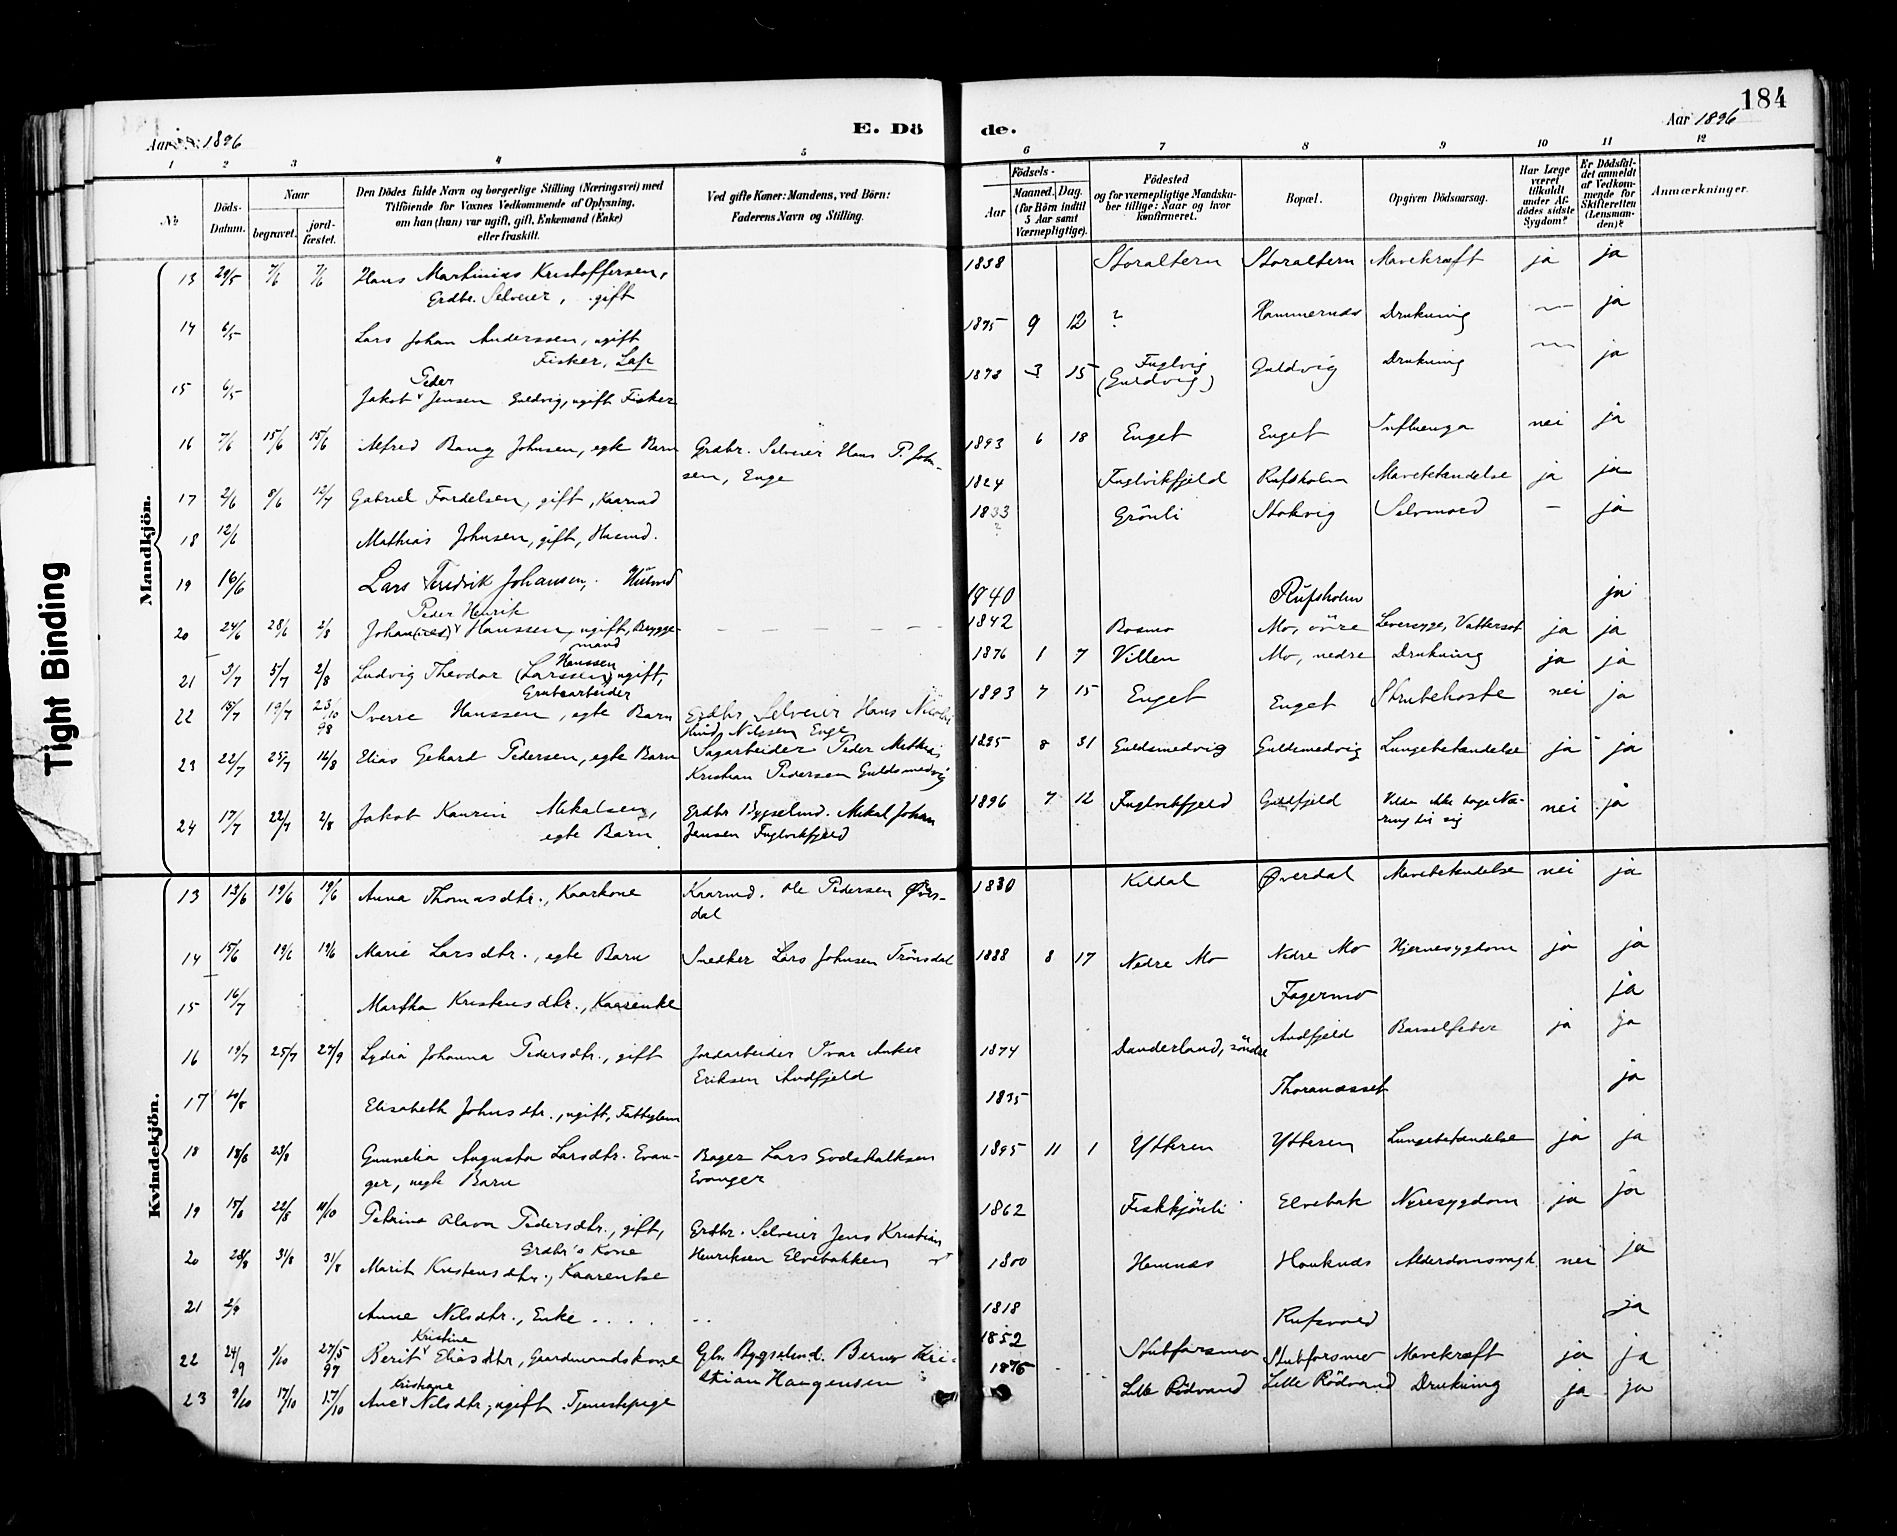 184
Aar 1896
E. Dö de.
Aar 1896
1 2 3 4 5 6 7 8 9 10 11 12
№
Döds-Datum.
Naar
begravet.
jord-fæstet.
Den Dödes fulde Navn og borgerlige Stilling (Næringsvei) med
Tilföiende for Voxnes Vedkommende af Oplysning,
om han (hun) var ugift, gift, Enkemand (Enke)
eller fraskilt.
Ved gifte Koner: Mandens, ved Börn:
Faderens Navn og Stilling.
Födsels-
Aar
Maaned. Dag.
(for Börn indtil
5 Aar samt
Værnepligtige).
Födested
og for værnepligtige Mandsku-
ber tillige: Naar og hvor
konfirmeret.
Bopæl.
Opgiven Dödsaarsag.
Har Læge
været
tilkaldt
under Af-
dödes sidste
Sygdom?
Er Dödsfal-
det anmeldt
af Vedkom-
mende for
Skifteretten
(Lensman-
den)?
Anmærkninger.
Tight Binding
Mandkjön.
13 29/5 7/6 7/6 Hans Martinius Kristoffersen, 1838 Storaltern Storaltern Mavekræft ja ja
Grdbr. Selveier, gift
14 6/5 Lars Johan Anderssen, ugift 1875 9 12 ? Hammernæs Drukning — ja
Fisker, Lap
15 6/5 Jakob Peder Jensen Guldvig, ugift Fisker 1878 3 15 Fuglvig (Guldvig) Guldvig Drukning — ja
16 7/6 15/6 15/6 Alfred Bang Johnsen, egte Barn Grdbr. Selveier Hans P. John- 1893 6 18 Enget Enget Influenza nei ja
sen, Enge
17 2/6 8/6 12/7 Gabriel Fordelsen, gift, Kaarmd 1824 Fuglvikfjeld Rufsholm Mavebetændelse ja ja
18 12/6 Mathias Johnsen, gift, Husmd. 1833 ? Grönli Stokvig Selvmord — ja
19 16/6 Lars Fredrik Johansen, Husmd 1840 Rufsholm ja
20 24/6 28/6 2/8 Johan Peder Henrik Hanssen, ugift, Brygge- 1842 Bosmo Mo, övre Leversyge, Vattersot ja ja
mand
21 3/7 5/7 2/8 Ludvig Theodor (Larssen) Hanssen ugift, 1876 1 7 Villen Mo, nedre Drukning ja ja
Grubearbeider
22 15/7 19/7 23/10 98 Sverre Hanssen, egte Barn Grdbr Selveier Hans Nikolai 1893 7 15 Enget Enget Strubehoste nei ja
Hind Nilssen Enge
23 22/7 25/7 16/8 Elias Gehard Pedersen, egte Barn Sagarbeider Peder Mathias 1895 8 31 Guldsmedvig Guldsmedvig Lungebetændelse ja ja
Kristian Pedersen Guldsmedvig
24 17/7 22/7 2/8 Jakob Kaurin Mikalsen, Grdbr Bygselmd. Mikal Johan 1896 7 12 Fuglvikfjeld Guldfjeld Vilde ikke tage Næ- nei ja
egte Barn Jensen Fuglvikfjeld ring til sig
Kvindekjön.
13 13/6 19/6 19/6 Anna Thomasdtr., Kaarkone Kaarmd. Ole Pedersen Øver- 1830 Kildal Øverdal Mavebetændelse nei ja
dal
14 15/6 19/6 19/6 Marie Larsdtr., egte Barn Snedker Lars Johnsen Trönsdal 1888 8 17 Nedre Mo Nedre Mo Hjernesygdom ja ja
15 16/7 Martha Kristensdtr., Kaarenke Fagermo ja
16 19/7 25/7 27/9 Lydia Johanna Pedersdtr., gift Jordarbeider Ivar Anker 1874 Dunderland, söndre Andfjeld Barselfeber ja ja
Eriksen Andfjeld
17 10/8 Elisabeth Johnsdtr., ugift, Fattiglem 1835 Thoranæsset ja
18 18/8 23/8 Gunnelia Augusta Larsdtr. Evan- Bager Lars Godskalksen 1895 11 1 Ytteren Ytteren Lungebetændelse ja ja
ger, uegte Barn Evanger
19 15/8 22/8 10/10 Petrine Olava Pedersdtr., gift, Grdbr. Selveier Jens Kristian 1862 Fiskkjönli Elvebak Nyresygdom ja ja
Grdbr's Kone Henriksen Elvebakken
20 28/8 31/8 31/8 Marit Kristensdtr., Kaarenke 1800 Hemnæs Hauknes Alderdomsvagh nei ja
21 2/9 Anne Nilsdtr., Enke 1818 Rufsvold ja
22 24/9 2/10 27/5 97 Berit Kristine Eliasdtr, Gaardmandskone Gbr. Bygselmd. Berner Kri- 1852 Stubforsmo Stubforsmo Mavekræft ja ja
stian Haagensen
23 9/10 17/10 17/10 Ane Kristiane Nilsdtr, ugift Tjenestepige 1876 Lille Rödvand Lille Rödvand Drukning ja ja